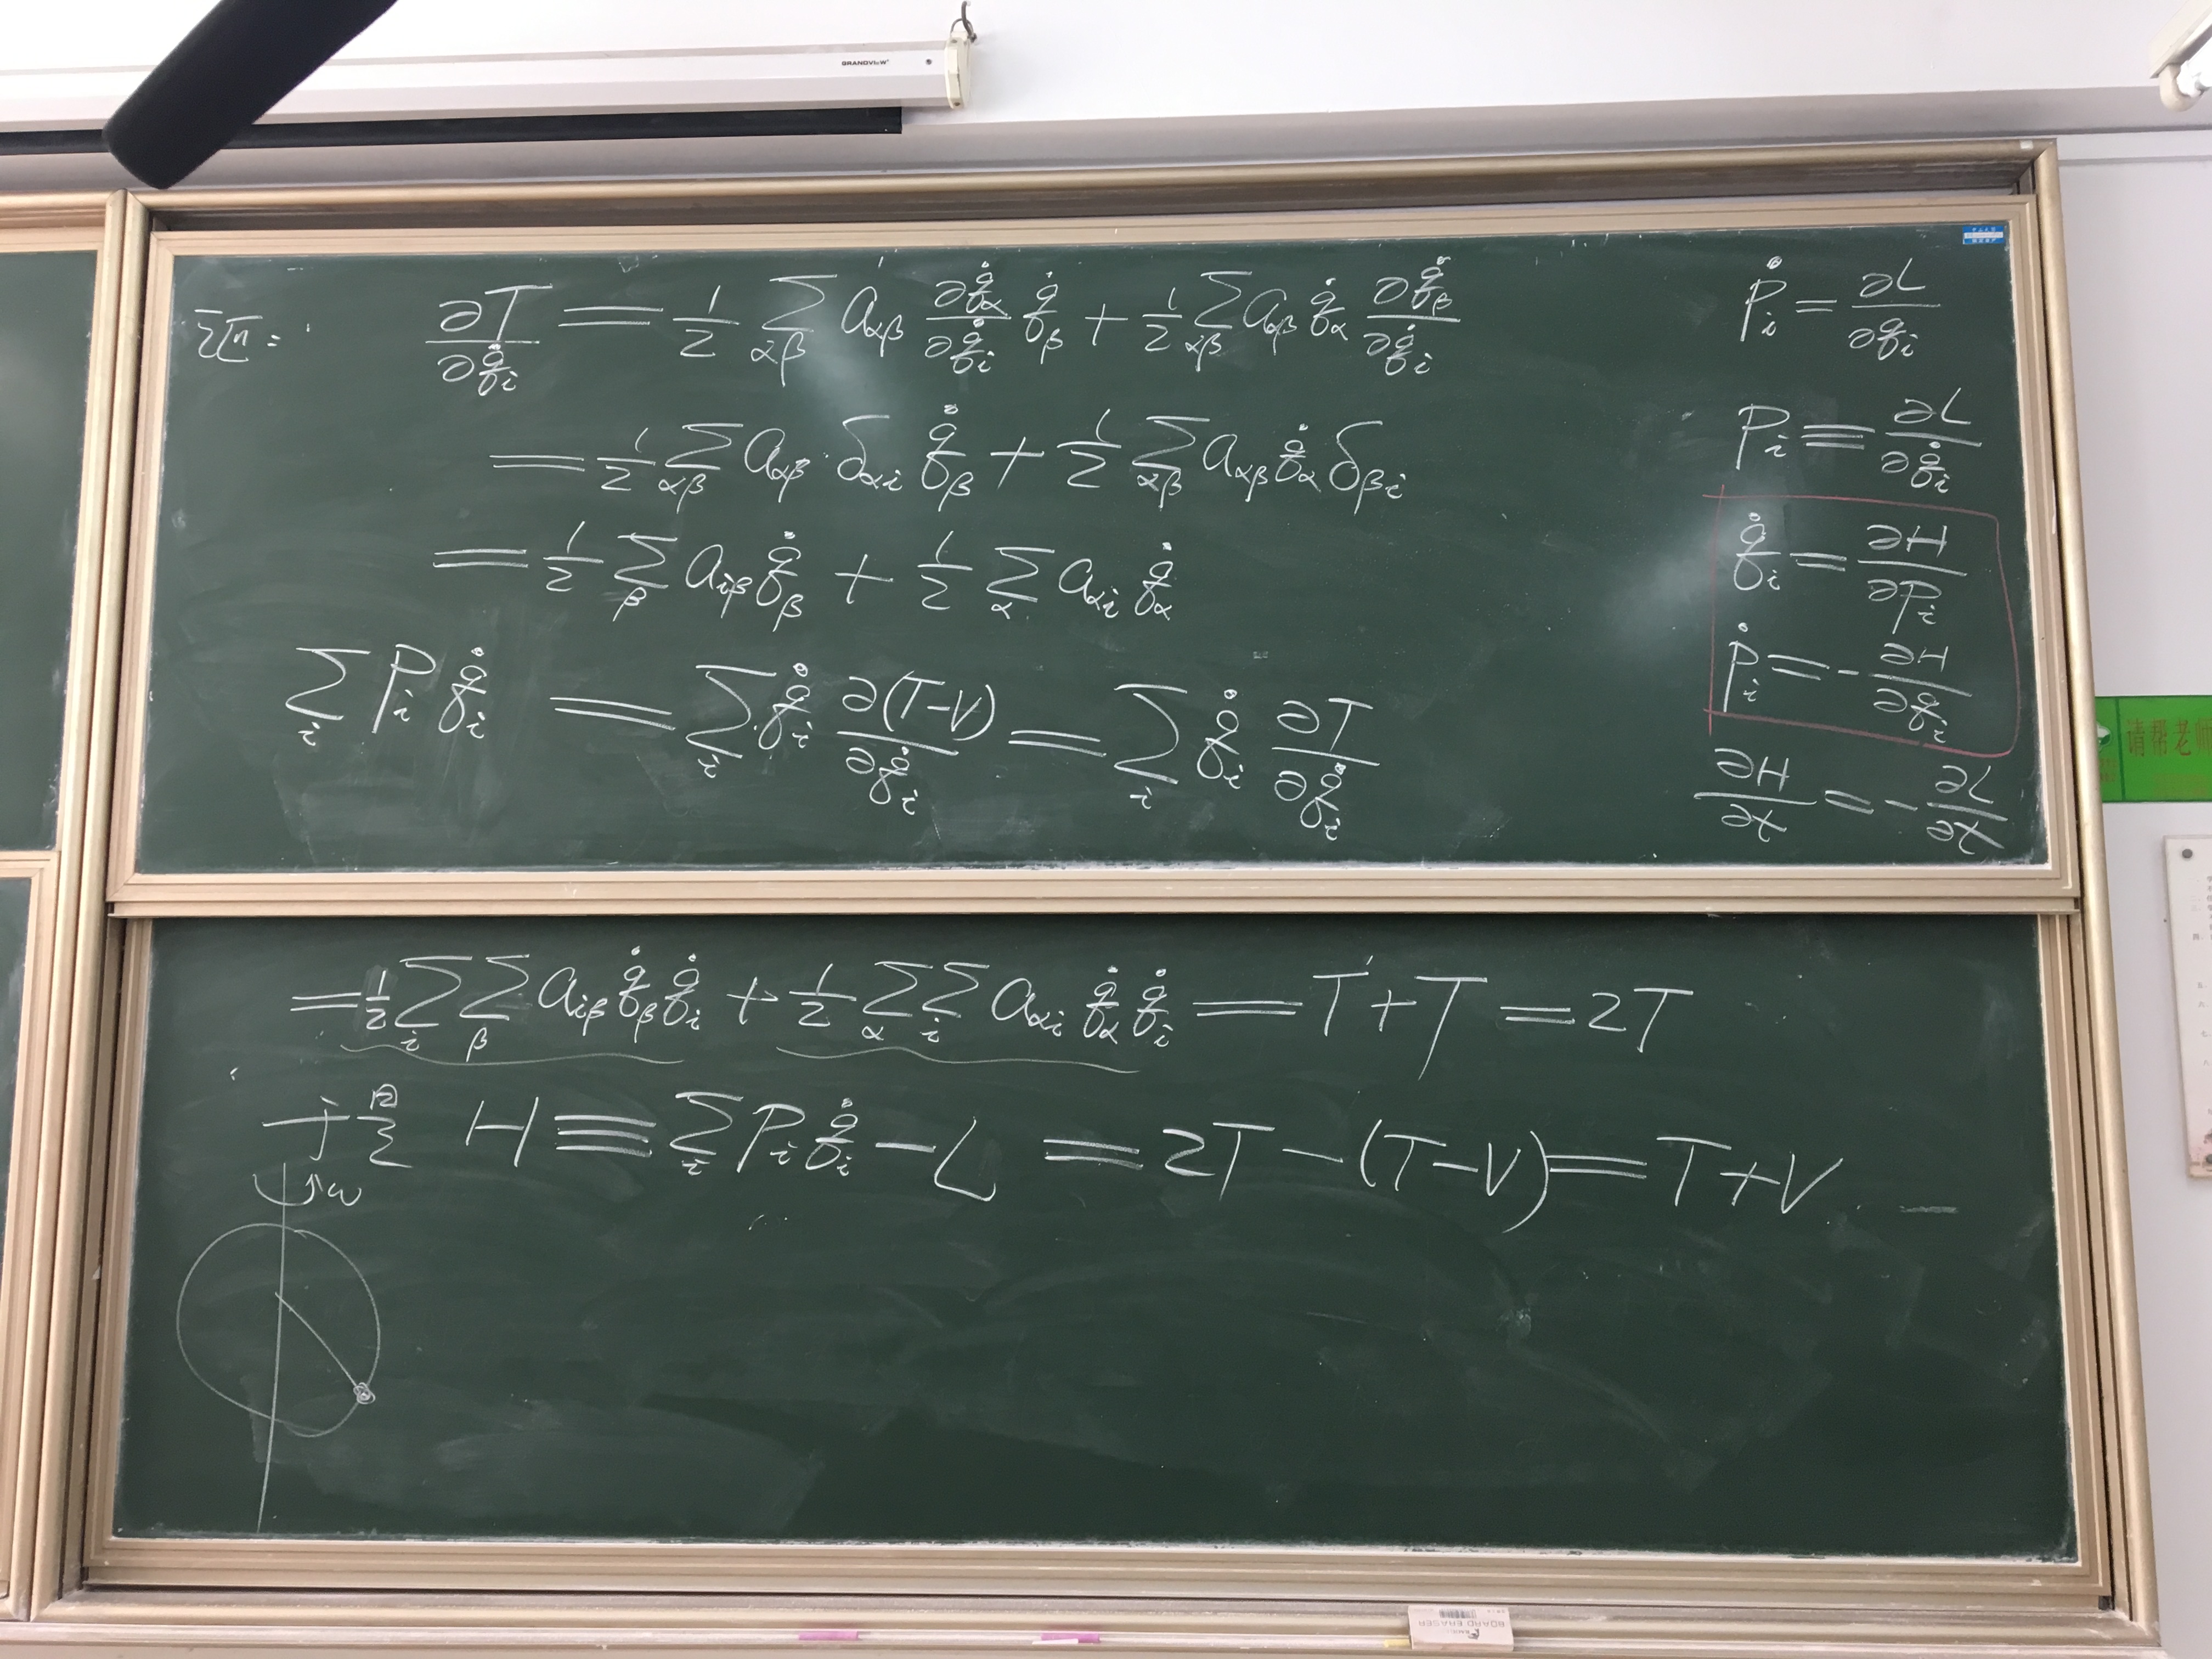 GRANDVIEW
证: ∂T/∂q̇ᵢ = 1/2 Σ_αβ a_αβ ∂q̇_α/∂q̇ᵢ q̇_β + 1/2 Σ_αβ a_αβ q̇_α ∂q̇_β/∂q̇ᵢ
= 1/2 Σ_αβ a_αβ δ_αi q̇_β + 1/2 Σ_αβ a_αβ q̇_α δ_βi
= 1/2 Σ_β a_iβ q̇_β + 1/2 Σ_α a_αi q̇_α
Σ_i Pᵢ q̇ᵢ = Σ_i q̇ᵢ ∂(T-V)/∂q̇ᵢ = Σ_i q̇ᵢ ∂T/∂q̇ᵢ
Ṗᵢ = ∂L/∂qᵢ
Pᵢ ≡ ∂L/∂q̇ᵢ
q̇ᵢ = ∂H/∂Pᵢ
Ṗᵢ = -∂H/∂qᵢ
∂H/∂t = -∂L/∂t
= 1/2 Σ_i Σ_β a_iβ q̇_β q̇ᵢ + 1/2 Σ_α Σ_i a_αi q̇_α q̇ᵢ = T + T = 2T
于是 H ≡ Σ_i Pᵢ q̇ᵢ - L = 2T - (T-V) = T+V
ω
请帮老师
BOARD ERASER